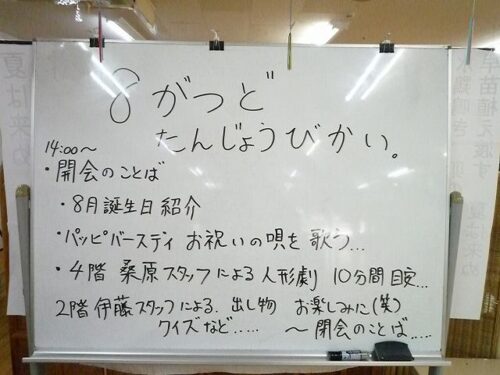 8がつど
たんじょうびかい。
14:00〜
・開会のことば
・8月誕生日紹介
・パッピバースティ お祝いの唄を歌う...
・4階 桑原スタッフによる人形劇 10分間目安...
2階伊藤スタッフによる.出し物 お楽しみに(笑)
クイズなど.....
〜閉会のことば.....
夏は来ぬ
早苗植え渡す
夏は来ぬ